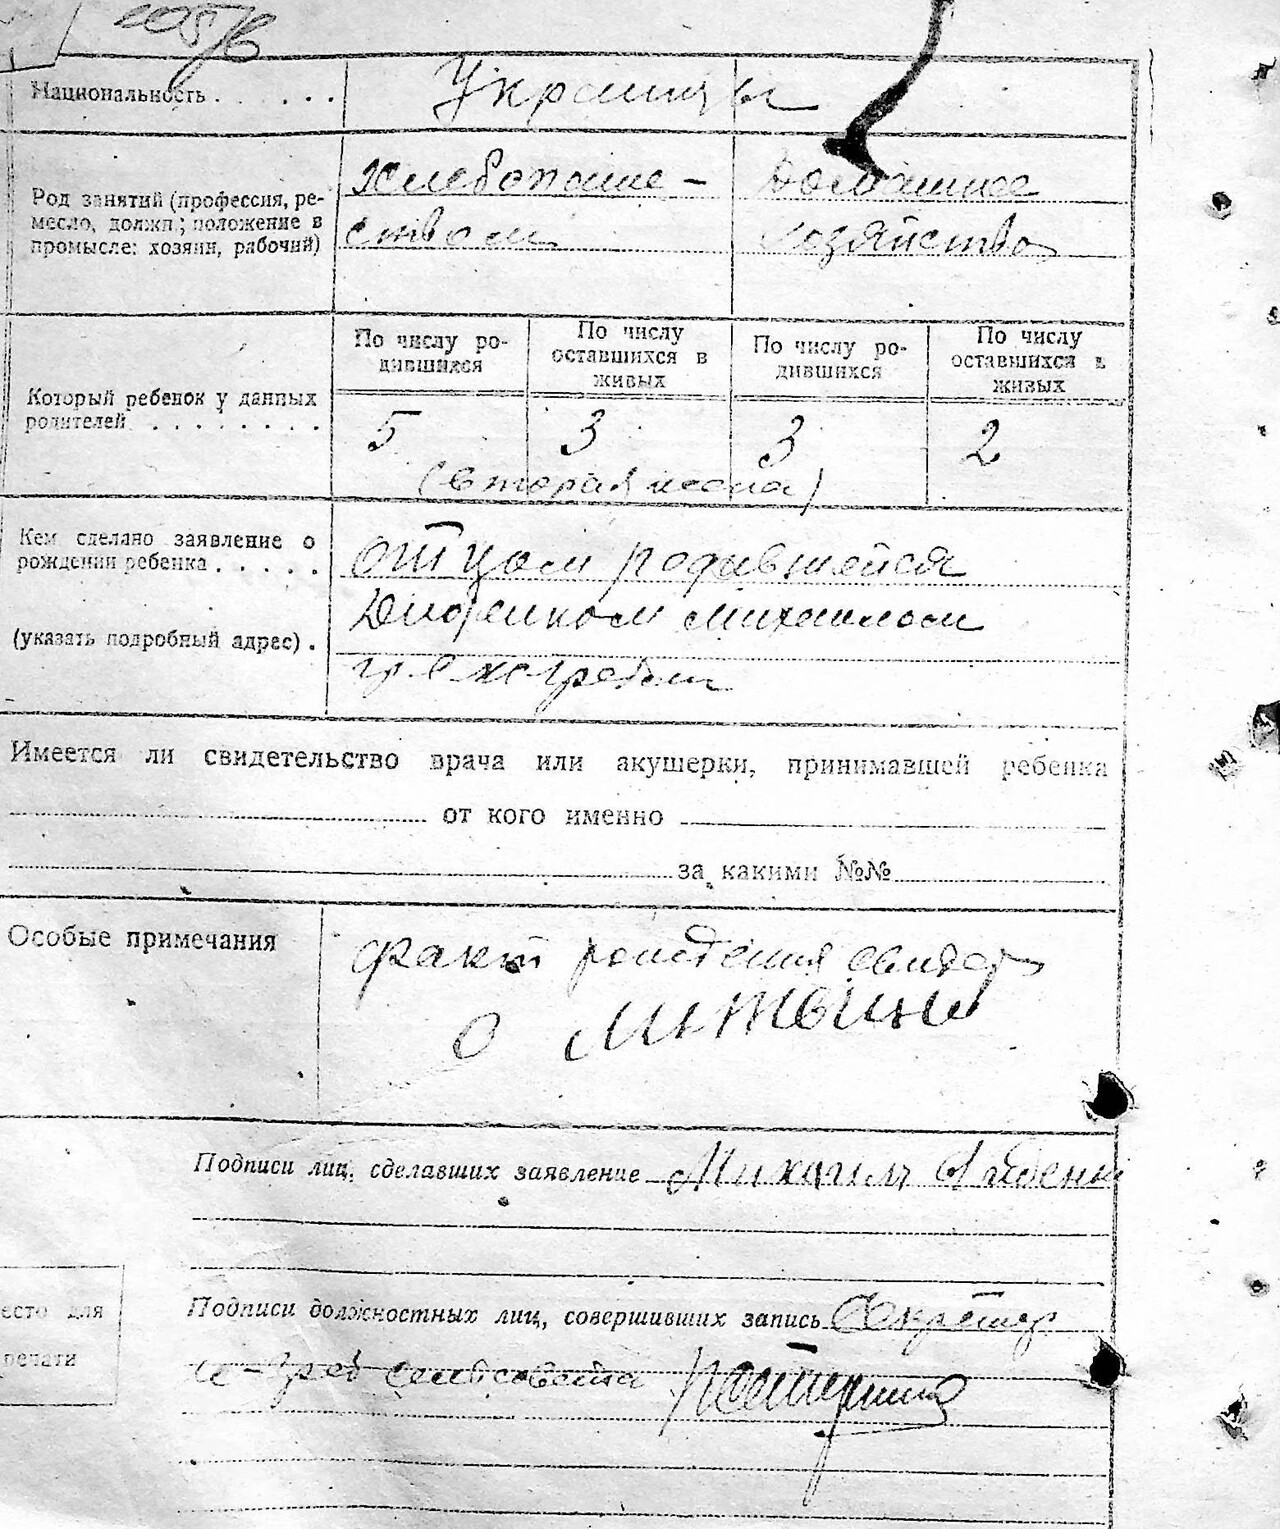 Национальность . . . . . . Украинцы
Род занятий (профессия, ре-
месло, должн.; положение в
промысле: хозяин, рабочий)
хлебопаше-
ством
Домашнее
хозяйство
Который ребенок у данных
родителей . . . . . . . .
По числу ро-
дившихся
По числу
оставшихся в
живых
По числу ро-
дившихся
По числу
оставшихся в
живых
5 3 3 2
(вторая жена)
Кем сделано заявление о
рождении ребенка . . . . .
(указать подробный адрес) .
отцом родившейся
Михаилом
Имеется ли свидетельство врача или акушерки, принимавшей ребенка
от кого именно
за какими №№
Особые примечания
факт рождения свидет
о
Подписи лиц, сделавших заявление Михаил
есто для
печати
Подписи должностных лиц, совершивших запись Секретар
сельсовета